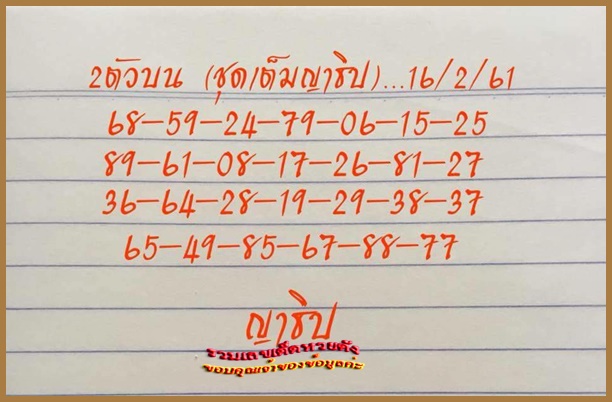 2ตัวบน (ชุดเต็มญาธิป)...16/2/61
68-59-24-79-06-15-25
89-61-08-17-26-81-27
36-64-28-19-29-38-37
65-49-85-67-88-77
ญาธิป
รวมเลขเด็ดหวยดัง
ขอบคุณเจ้าของข้อมูลค่ะ